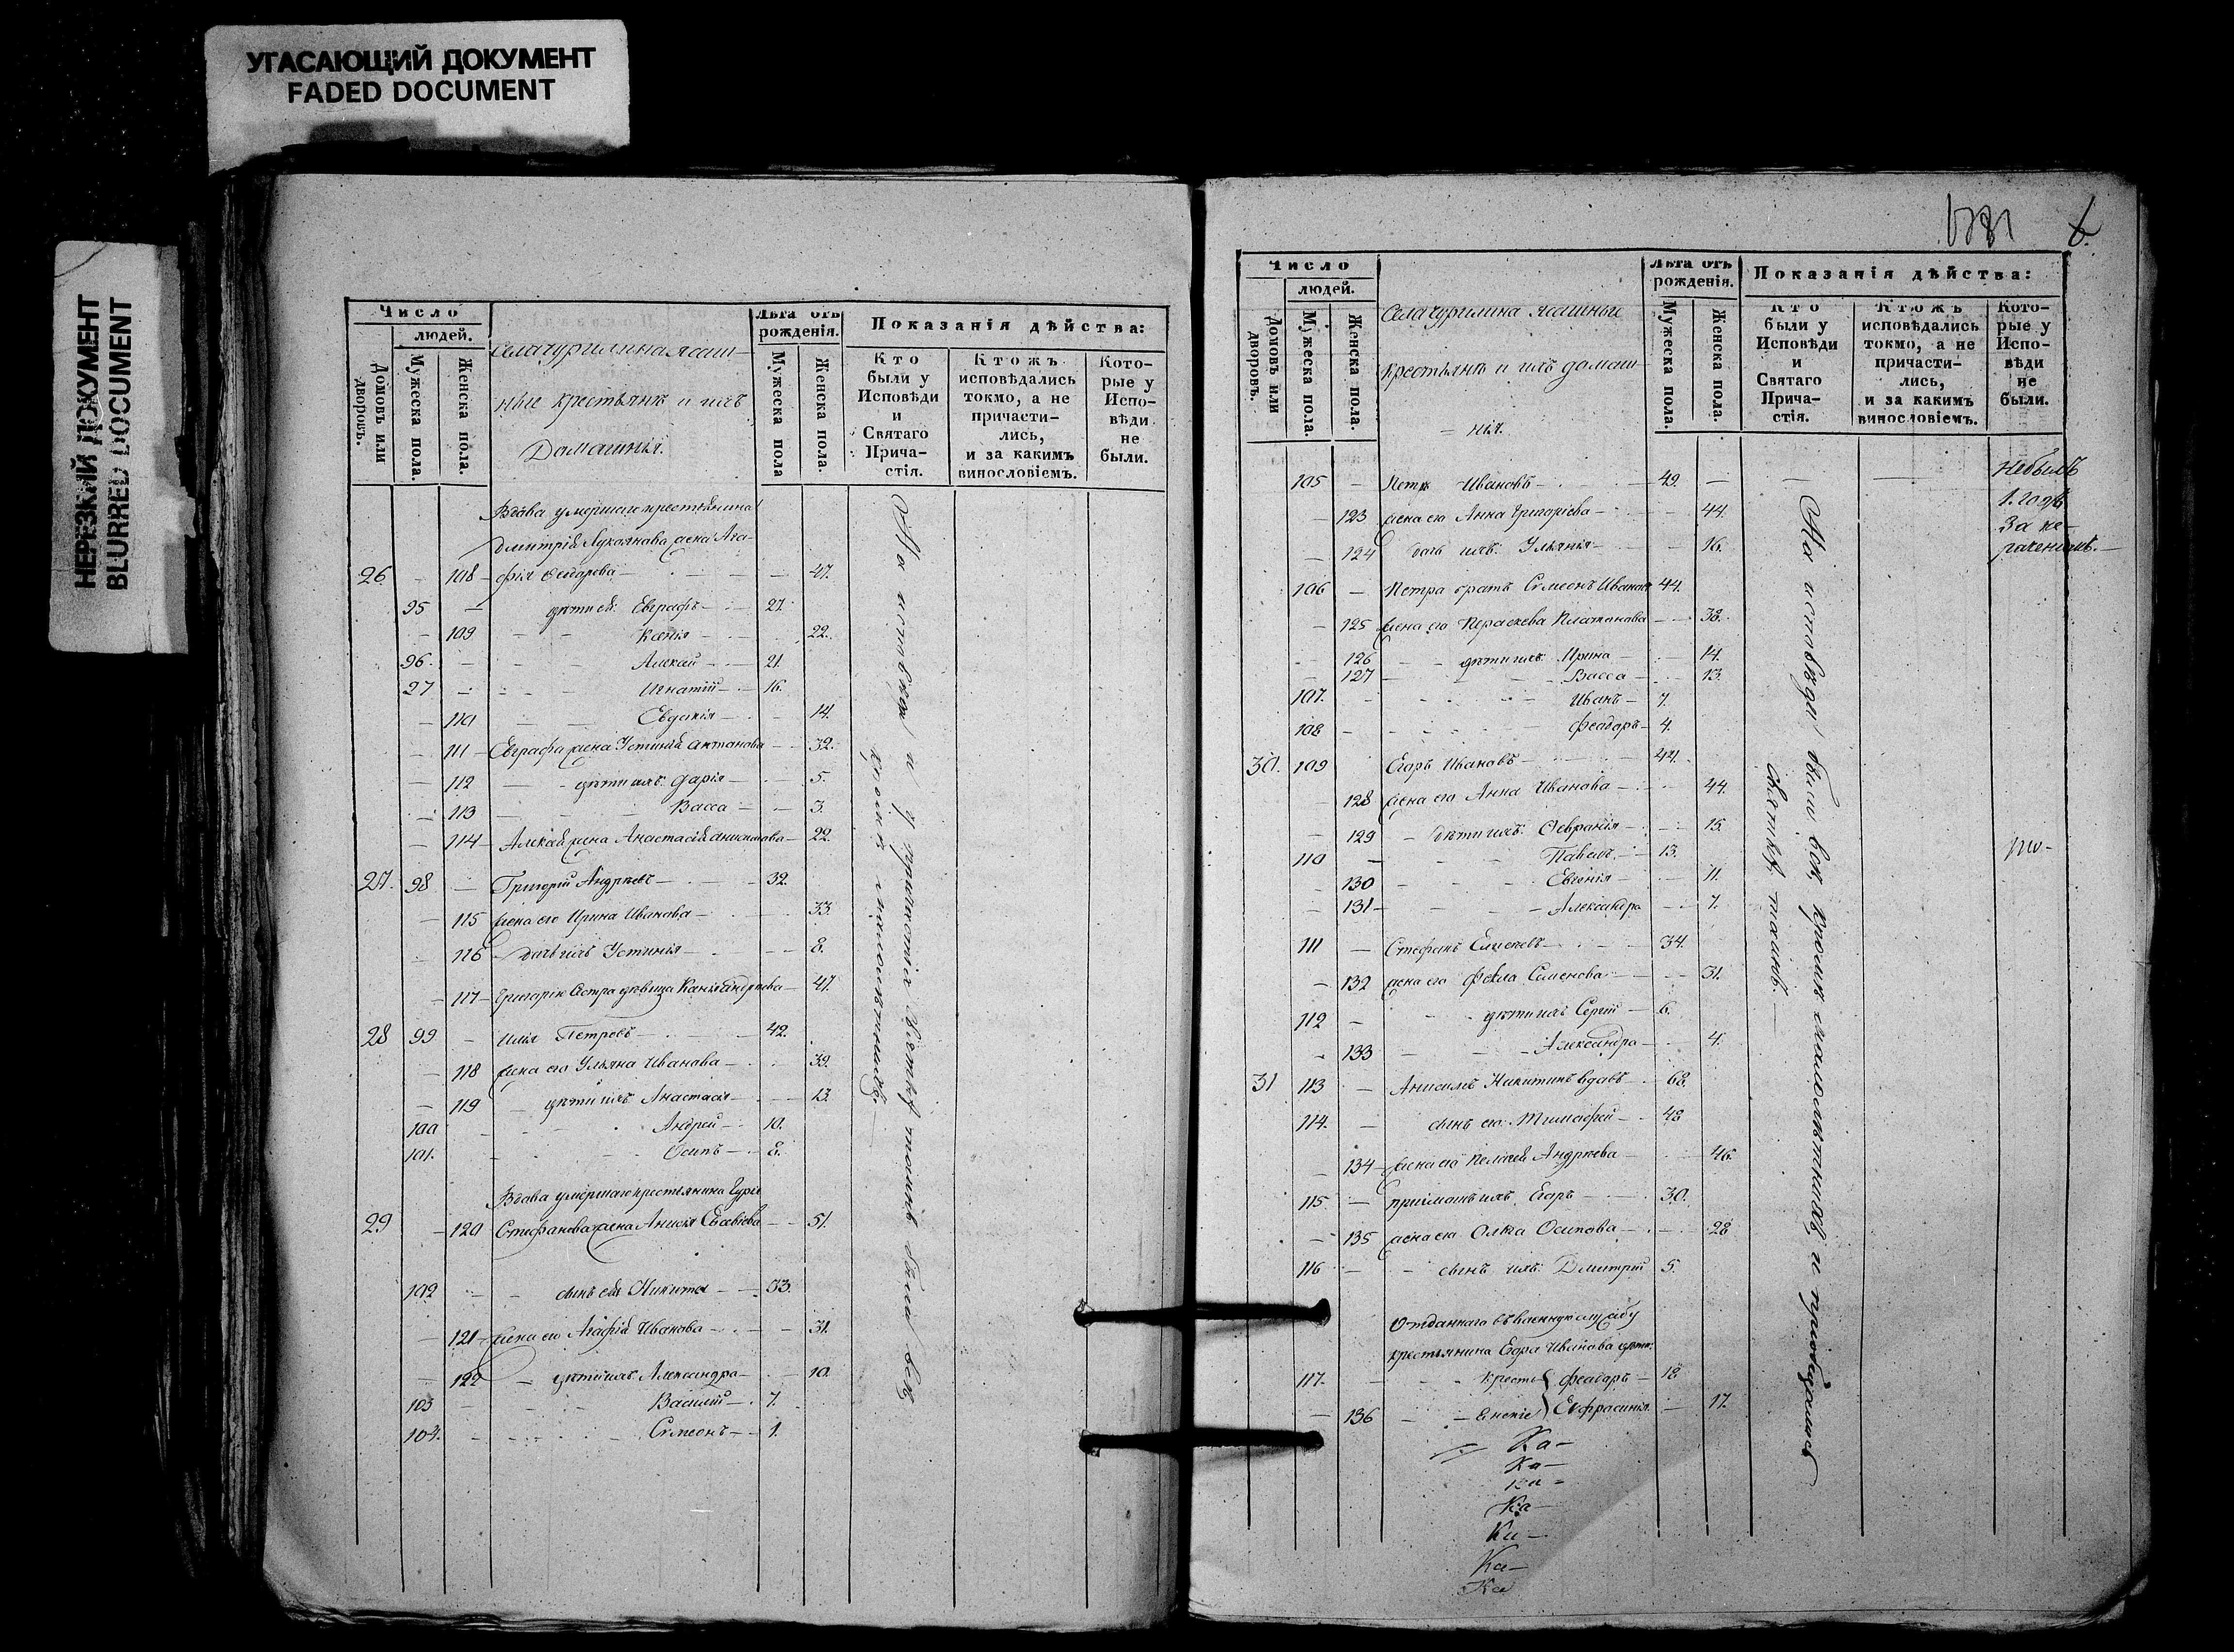 УГАСАЮЩИЙ ДОКУМЕНТ
FADED DOCUMENT
НЕРЕЗКИЙ ДОКУМЕНТ
BLURRED DOCUMENT
Число
людей.
Домовъ или дворовъ.
Мужеска пола.
Женска пола.
ные крестьянѣ и ихъ
Домашнія.
Лѣта отъ рожденія.
Мужеска пола
Женска пола.
Показанія дѣйства:
Кто были у Исповѣди и Святаго Причастія.
Ктожъ исповѣдались токмо, а не причастились, и за какимъ винословіемъ.
Которые у Исповѣди не были.
Вдова умершаго крестьянина
Дмитрія Лукоянова жена Ага-
26 – 108 – фія Ѳедорова – 47.
95 – дѣти ея: Евграфъ – 27.
– 109 Ксенія – 22.
96. – Алексій – 21.
27 – Игнатій – 16.
– 110 Евдокія – 14.
– 111 – Евграфа жена Устинія Антонова – 32.
– 112 – дѣти ихъ: Дарія – 5.
– 113 – Васса – 3.
– 114 – Алексія жена Анастасія – 22.
27. 98 – Григорій Андреевъ – 32.
– 115 жена его Ирина Иванова – 33.
116 – дочь ихъ Устинія – 8.
– 117 – Григорія сестра дѣвица – 47.
28 99 – Илія Петровъ – 42.
– 118 жена его Ульяна Иванова – 39.
– 119 – дѣти ихъ Анастасія – 13.
100 – Андрей – 10.
101. – Осипъ – 8.
Вдова умершаго крестьянина Гурія
29 – 120 Стефанова жена Анисія – 51.
102 – сынъ ея Никита – 33.
– 121 – жена его Агафія Иванова – 31.
– 122 – дѣти ихъ Александра – 10.
103 – Василій – 7.
104. – Симеонъ – 1.
На исповѣди и у причастія святыхъ таинъ были всѣ
кромѣ малолѣтнихъ.
6.
Число
людей.
Домовъ или дворовъ.
Мужеска пола.
Женска пола.
крестьянѣ и ихъ домаш-
= нія.
Лѣта отъ рожденія.
Мужеска пола.
Женска пола.
Показанія дѣйства:
Кто были у Исповѣди и Святаго Причастія.
Ктожъ исповѣдались токмо, а не причастились, и за какимъ винословіемъ.
Которые у Исповѣди не были.
105 – Петръ Ивановъ – 49. –
небылъ
1. годъ
За не-
раченіемъ. –
– 123 жена его Анна Григоріева – 44.
– 124 дочь ихъ: Ульянія – 16.
106 – Петра братъ Симеонъ Ивановъ 44.
– 125 жена его Параскева Платонова – 38.
126 – дѣти ихъ: Ирина – 14.
– 127 – Васса – 13.
107. – Иванъ – 7.
108 – Феодоръ – 4.
30. 109 Егоръ Ивановъ – 44.
– 128 жена его Анна Иванова – 44.
– 129 – дѣти ихъ: – 15.
110 – Павелъ – 13.
– 130 – Евгенія – 11.
– 131 – Александра – 7.
111 – Стефанъ – 34.
– 132 жена его Фекла Семенова – 31.
112 – дѣти ихъ Сергій – 6.
– 133 – Александра – 4.
31 113 – Анисимъ Никитинъ вдовъ – 68.
114. – сынъ его: Тимофей – 48
– 134 – жена его Пелагея Андреева – 46.
115 – пріимышъ ихъ Егоръ – 30.
– 135 жена его Олга Осипова – 28
116 – сынъ ихъ: Дмитрій 5.
Отданнаго въ военную службу
крестьянина Егора Иванова дѣти:
117. – Феодоръ – 18.
– 136 – Евфросинія. – 17.
На исповѣди были всѣ, кромѣ малолѣтнихъ, и пріобщались
святыхъ таинъ. –
Ка –
Ка –
Ка –
Ка –
Ка –
Ка –
Ка